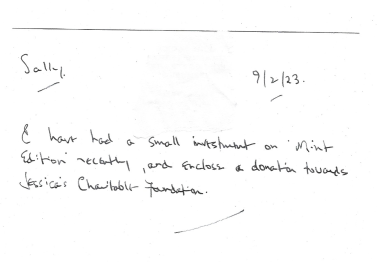 Sally.
9/2/23.
I have had a small investment on 'Mint
Edition' recently, and enclose a donation towards
Jessica's Charitable Foundation.